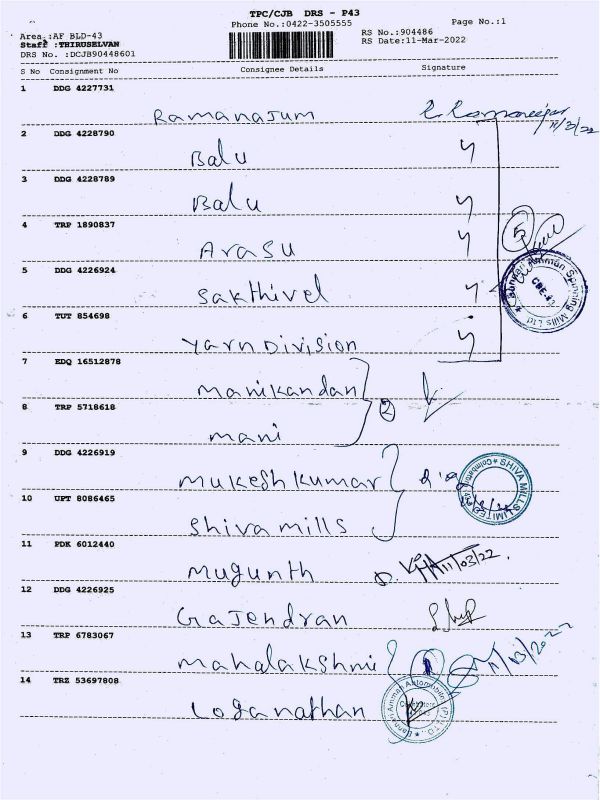 TPC/CJB DRS - P43
Phone No.:0422-3505555
Page No.:1
Area :AF BLD-43
Staff :THIRUSELVAN
DRS No. :DCJB90448601
RS No.:904486
RS Date:11-Mar-2022
S No Consignment No Consignee Details Signature
1 DDG 4227731
Ramanajum
11/3/22
2 DDG 4228790
Balu
3 DDG 4228789
Balu
4 TRP 1890837
Arasu
5
5 DDG 4226924
Sakthivel
Bannari Amman Spinning Mills Ltd
CBE-43
6 TUT 854698
Yarn Division
7 EDQ 16512878
Manikandan
2
8 TRP 5718618
Mani
9 DDG 4226919
Mukesh kumar
SHIVA MILLS LIMITED
Coimbatore
10 UPT 8086465
Shiva mills
11 PDK 6012440
Mugunth
11/03/22
12 DDG 4226925
Gajendran
13 TRP 6783067
Mahalakshmi
11/03/2022
14 TRZ 53697808
Loganathan
Bannari Amman Automobile (P) LTD
Coimbatore